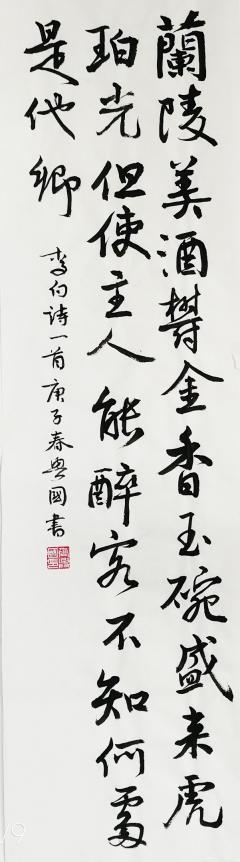 蘭陵美酒鬱金香玉碗盛来虎
珀光但使主人能醉客不知何處
是他鄉
李白詩一首庚子春興國書